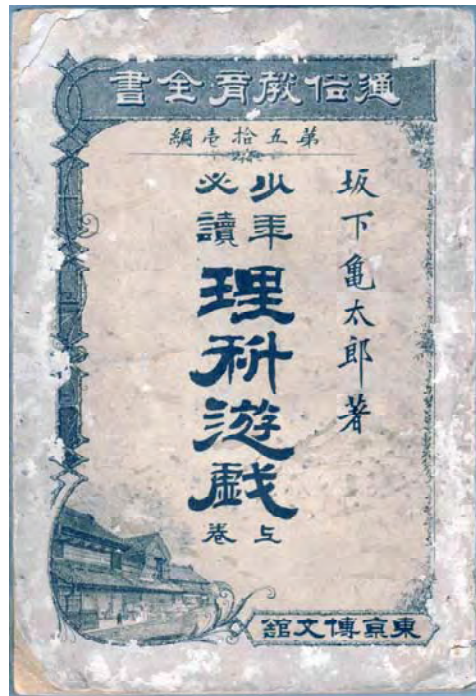 通俗敎育全書
第五拾壱編
坂下亀太郎著
少年
必讀
理科遊戯
上卷
東京博文館